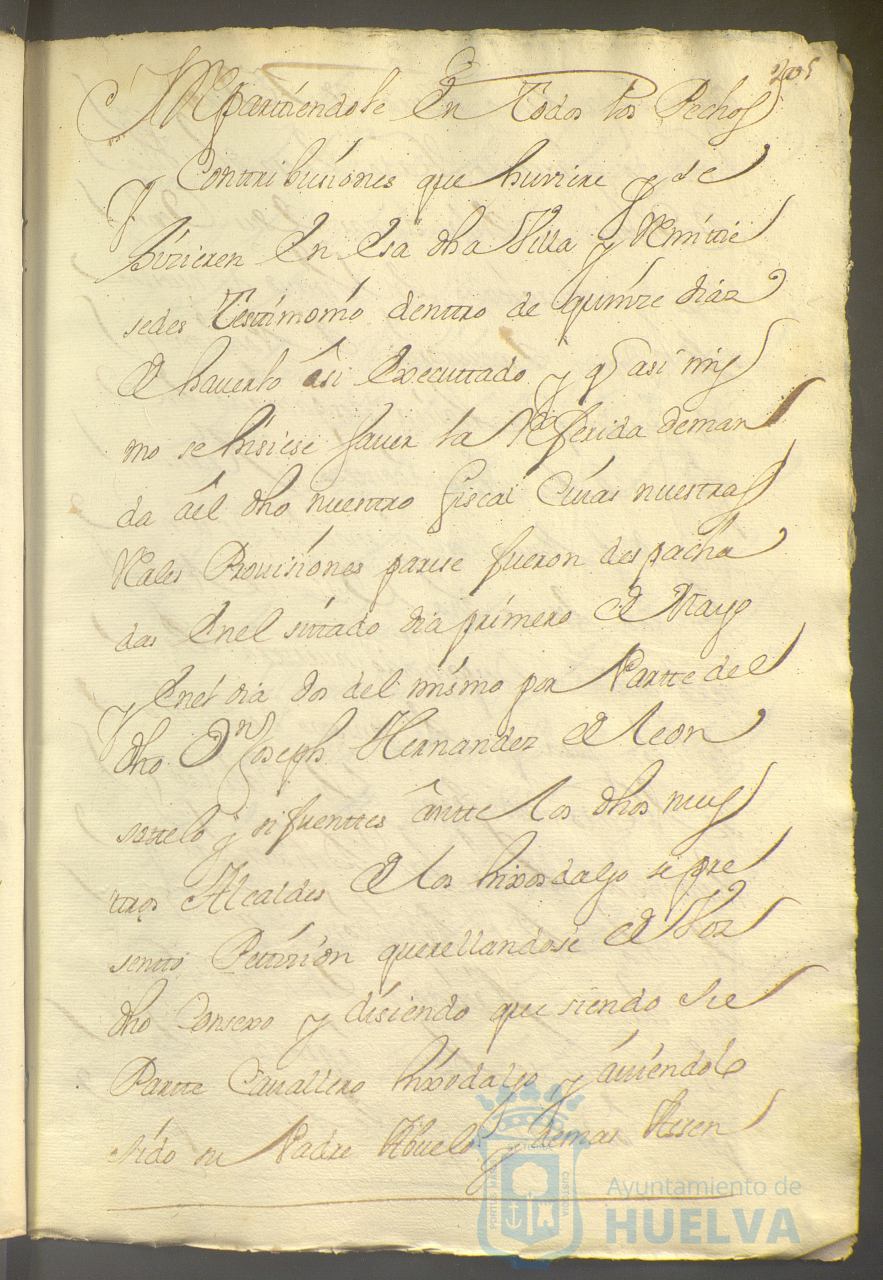 Repartiendole En Todos los Pechos
y Conttribusiones que huviere y se
hizieren En Esa dha Villa y Remittie
sedes Testtimonio denttro de quinze diaz
de haverlo asi Executtado y q asi mis
mo se hisiese saver la Referida deman
da ael dho nuestro Fiscal Cuias nuestras
Rales Provisiones parese fueron despacha
das Enel sittado dia primero de Mayo
y Enel dia dos del mismo por Partte del
dho Dn Joseph Hernandez de Leon
sottelo y sifuenttes antte los dhos nues
ttros Alcaldes de los hixosdalgo se pre
sentto Pettision querellandose de Voz
dho Consexo y disiendo que siendo Su
Partte Cavallero hixodalgo y aviendolo
sido su Padre Abuelo y demas Assen
Ayuntamiento de
HUELVA